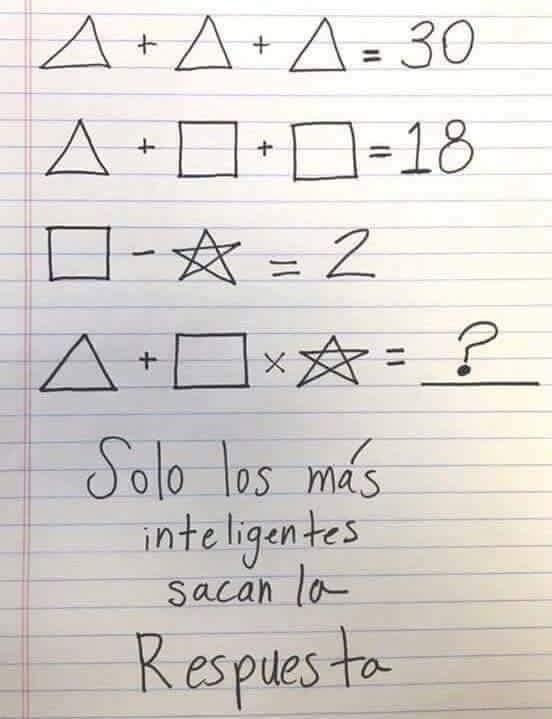 △ + △ + △ = 30
△ + □ + □ = 18
□ - ☆ = 2
△ + □ × ☆ = ?
Solo los más
inteligentes
sacan la
Respuesta